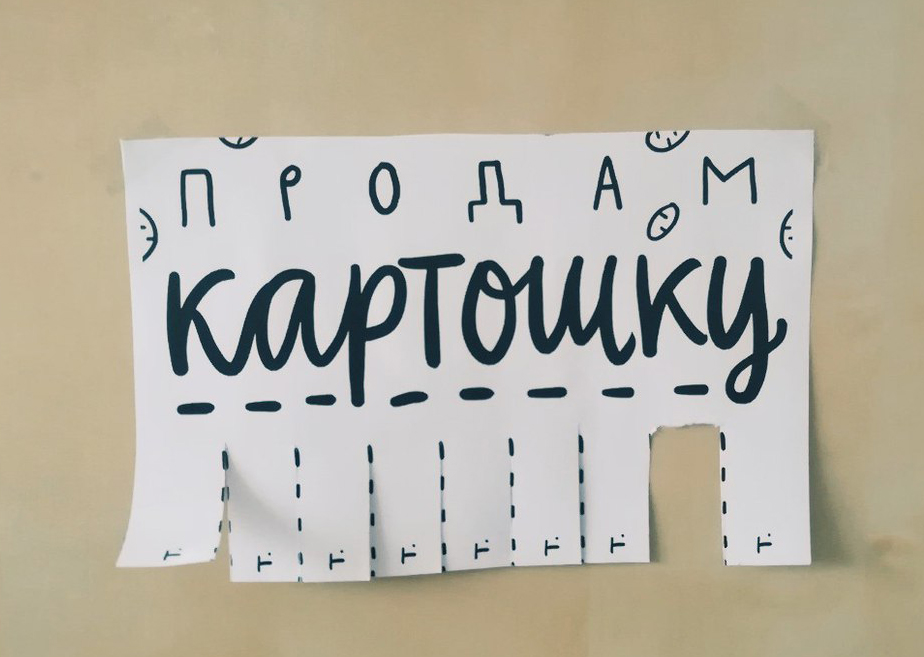 ПРОДАМ
картошку
т. т. т. т. т. т. т. т.